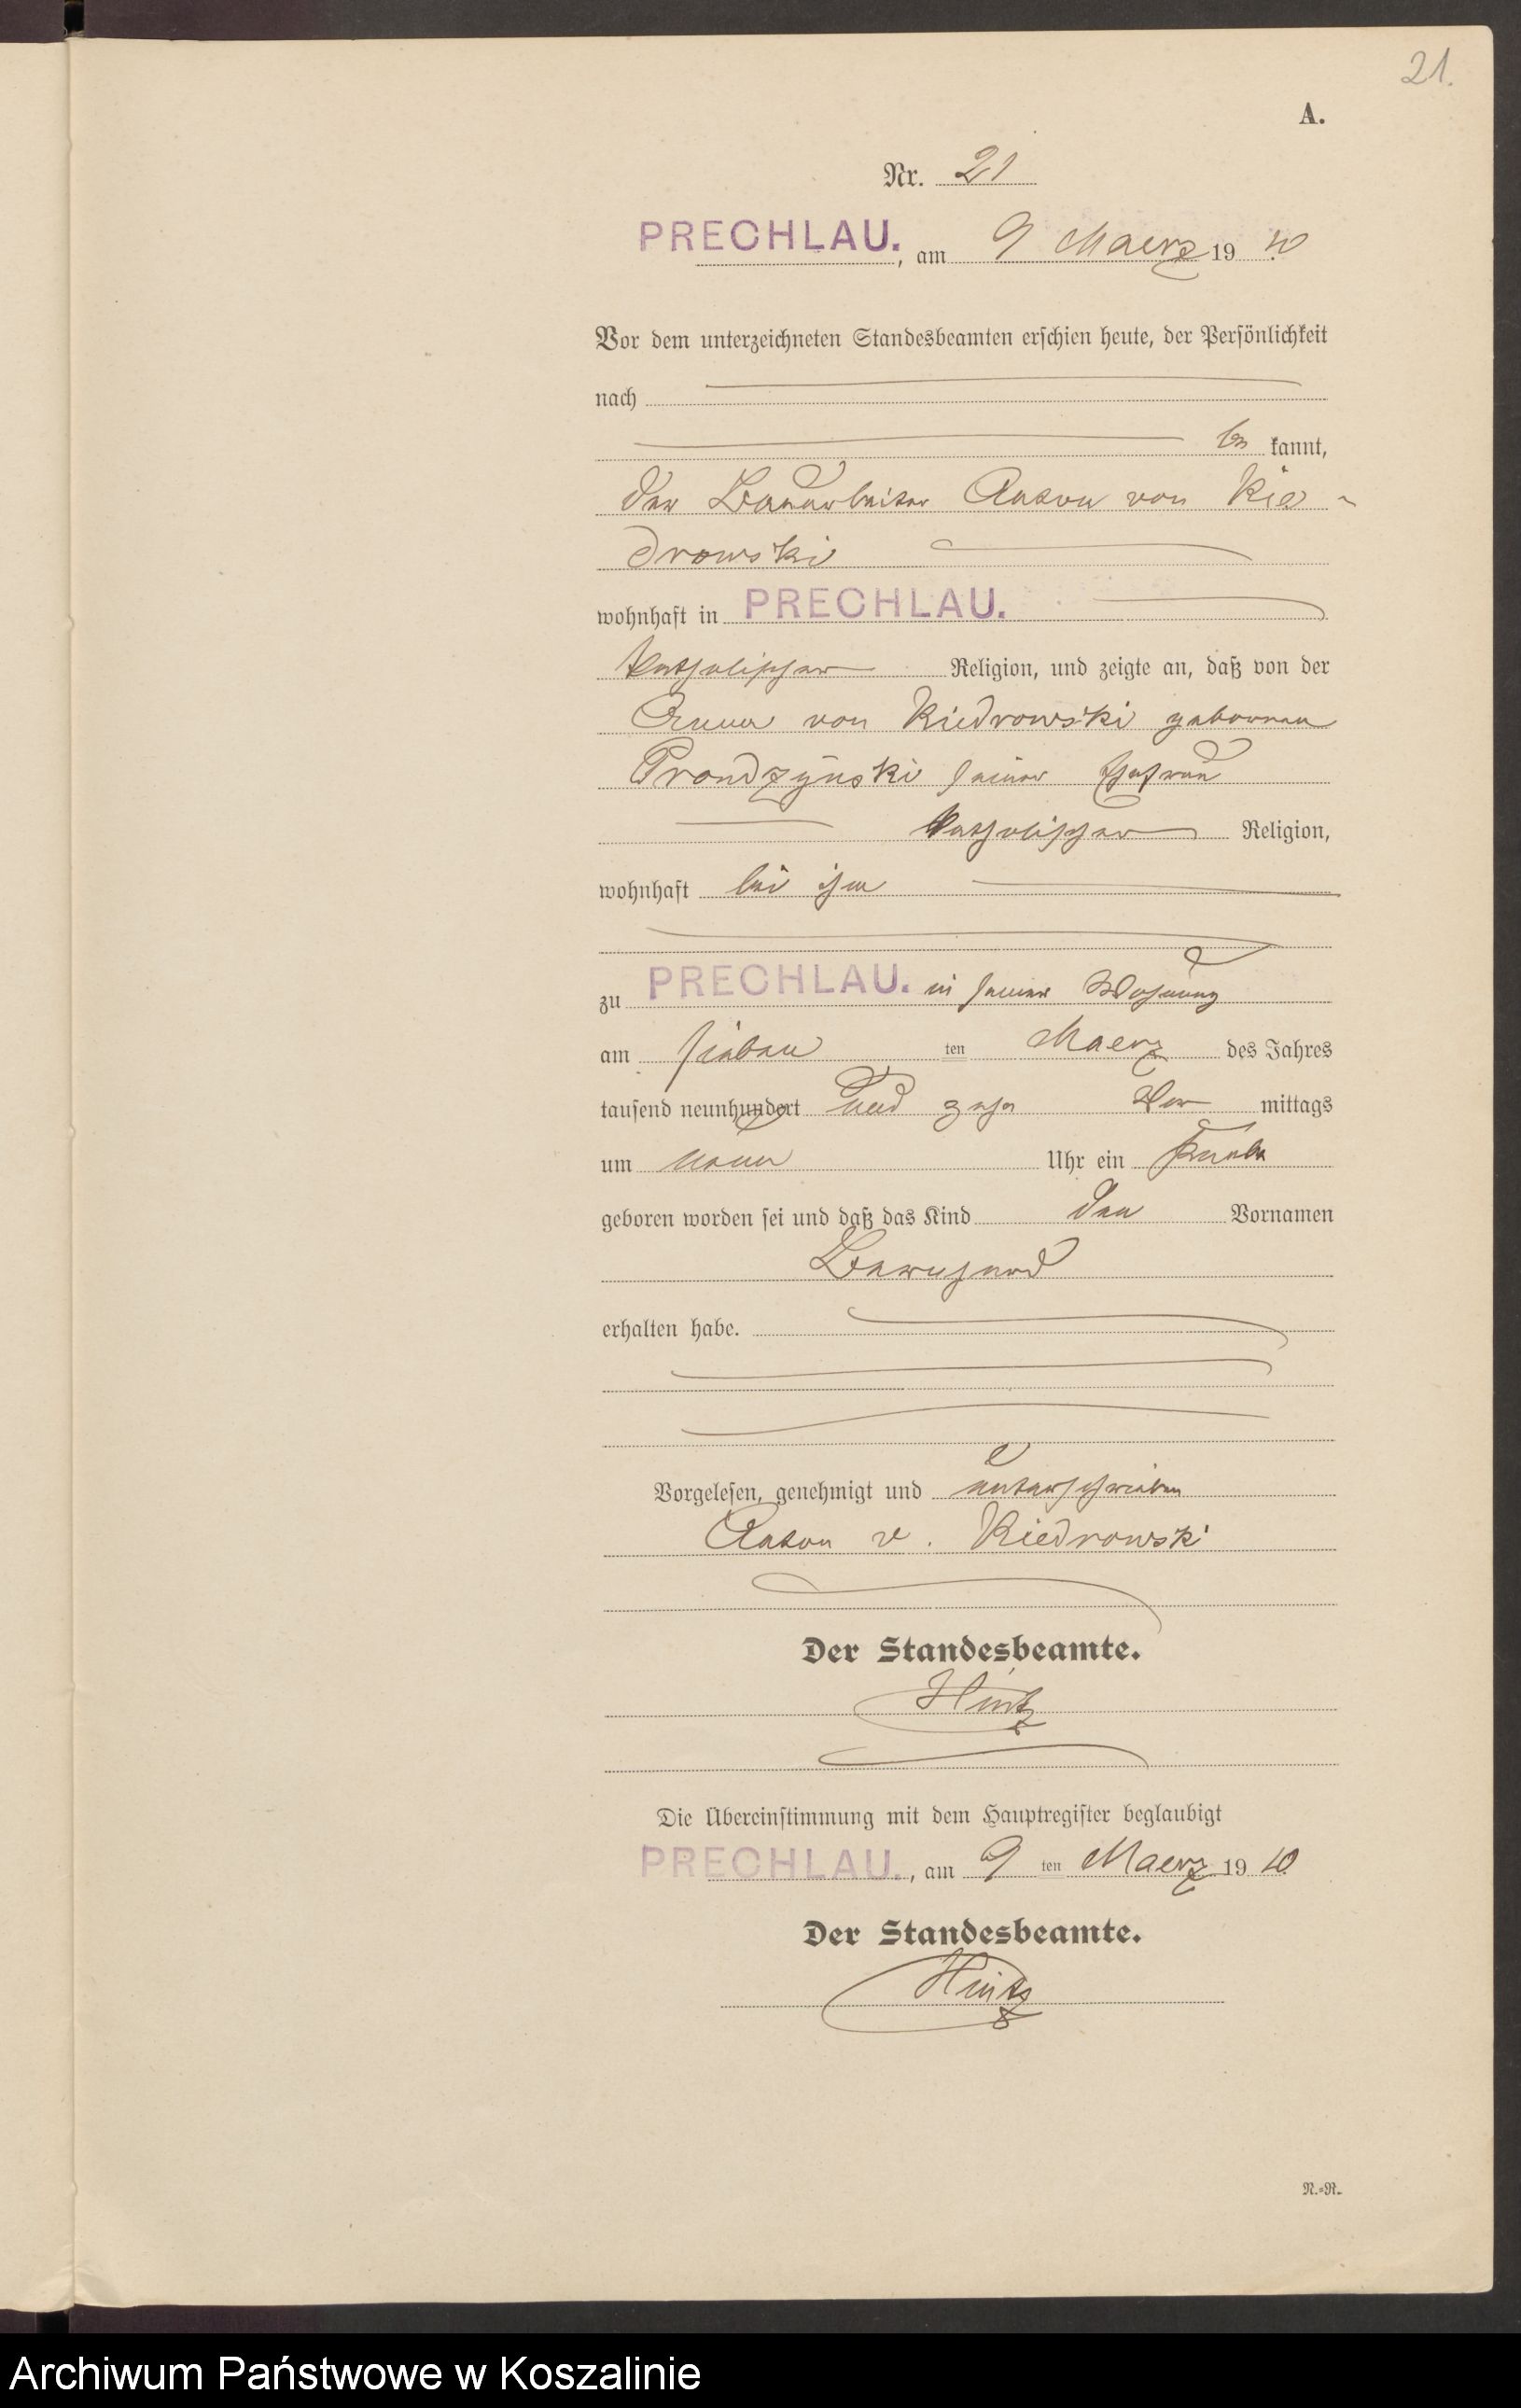 21.
A.
Nr. 21
PRECHLAU., am 9 Maerz 1910
Vor dem unterzeichneten Standesbeamten erschien heute, der Persönlichkeit
nach
be kannt,
der Bauarbeiter Anton von Kie-
drowski
wohnhaft in PRECHLAU.
katholischer Religion, und zeigte an, daß von der
Anna von Kiedrowski geborenen
Prondzynski seiner Ehefrau
katholischer Religion,
wohnhaft bei ihm
zu PRECHLAU. in seiner Wohnung
am sieben ten Maerz des Jahres
tausend neunhundert und zehn Vor mittags
um neun Uhr ein Knabe
geboren worden sei und daß das Kind den Vornamen
Bernhard
erhalten habe.
Vorgelesen, genehmigt und unterschrieben
Anton v. Kiedrowski
Der Standesbeamte.
Hintz
Die Übereinstimmung mit dem Hauptregister beglaubigt
PRECHLAU., am 9 ten Maerz 1910
Der Standesbeamte.
Hintz
N.=R.
Archiwum Państwowe w Koszalinie